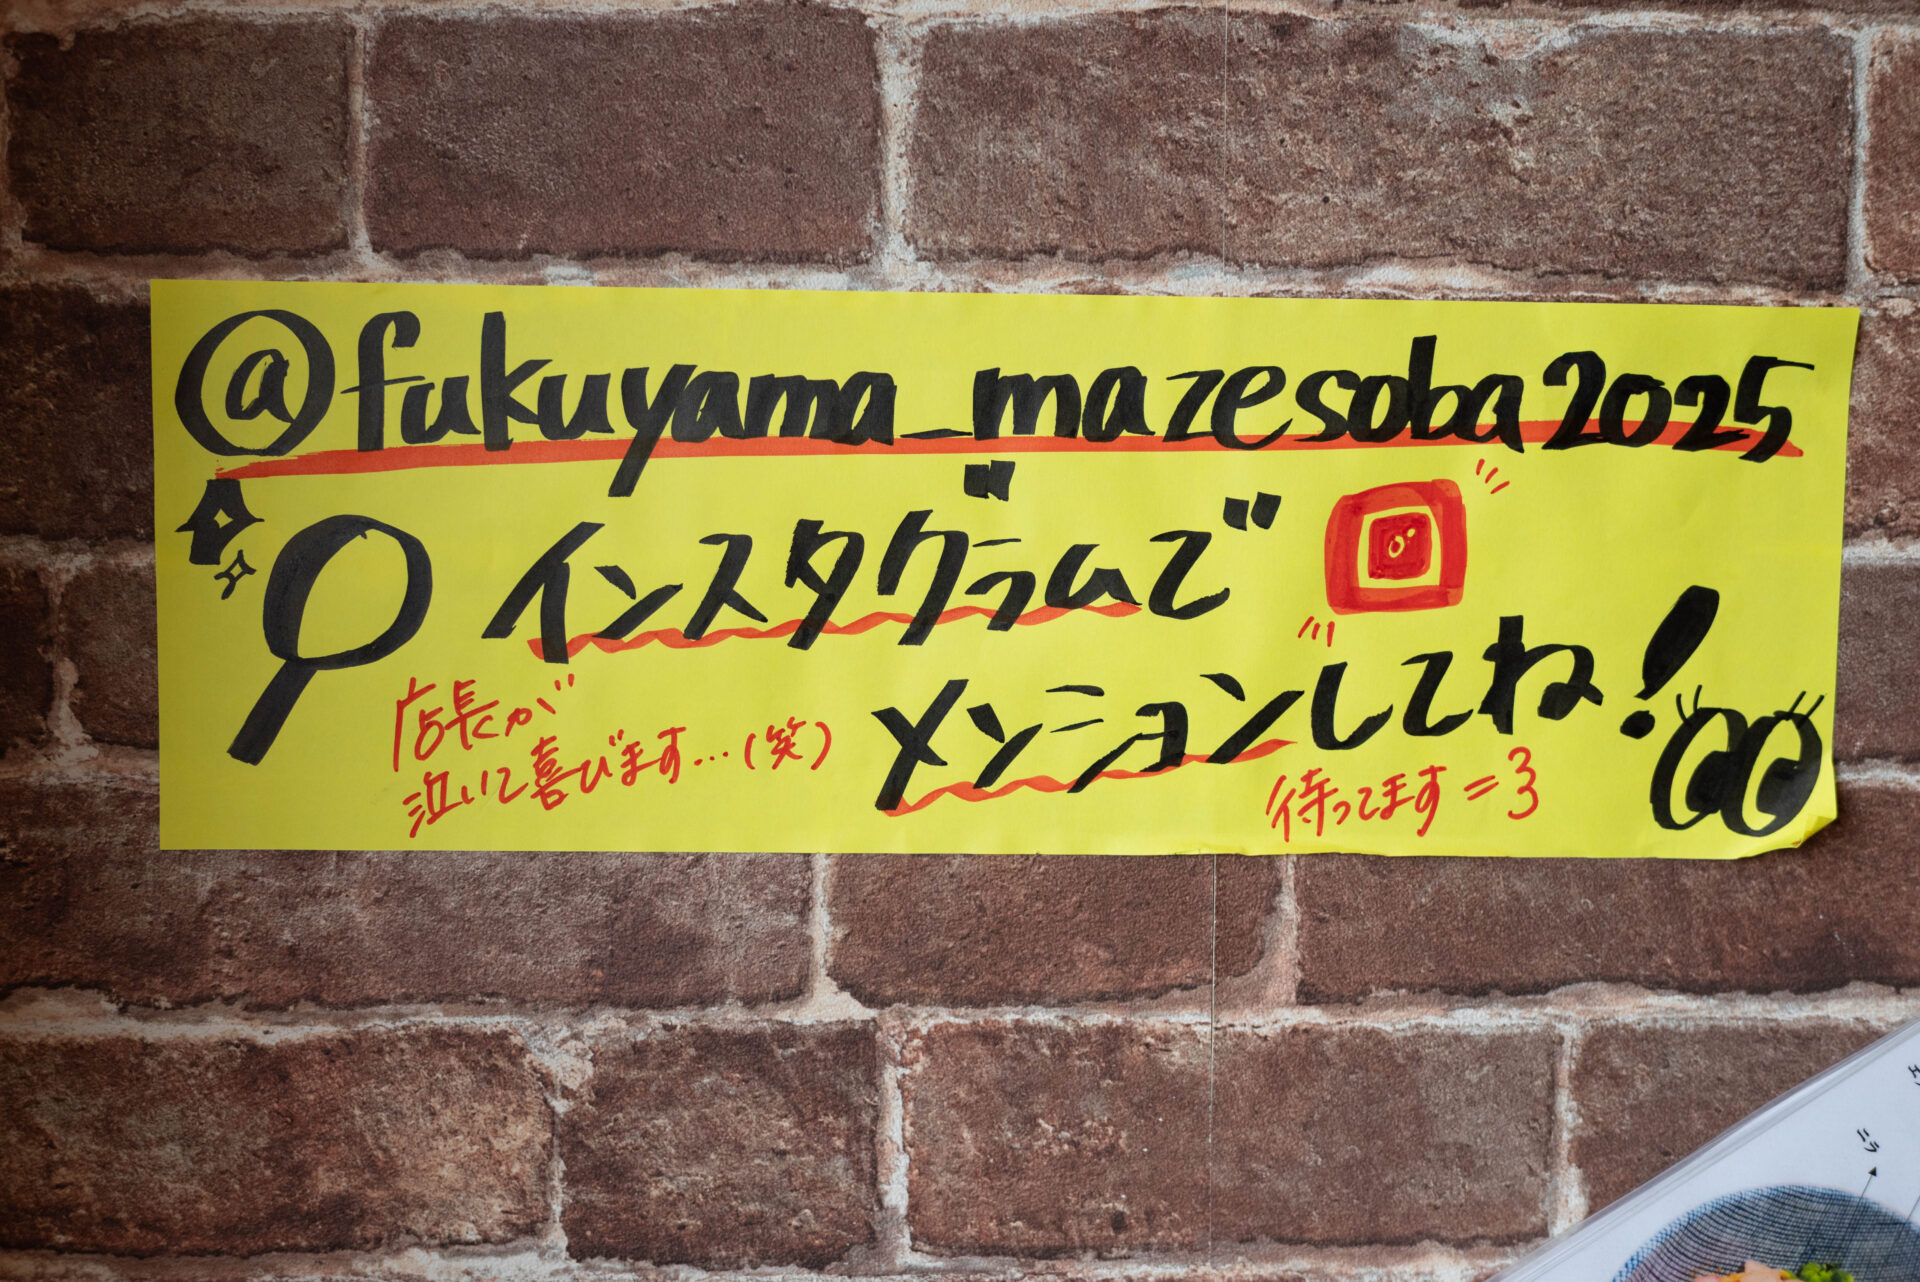 @fukuyama_mazesoba2025
インスタグラムで
メンションしてね!
店長が
泣いて喜びます…(笑)
待ってます=3
ニラ